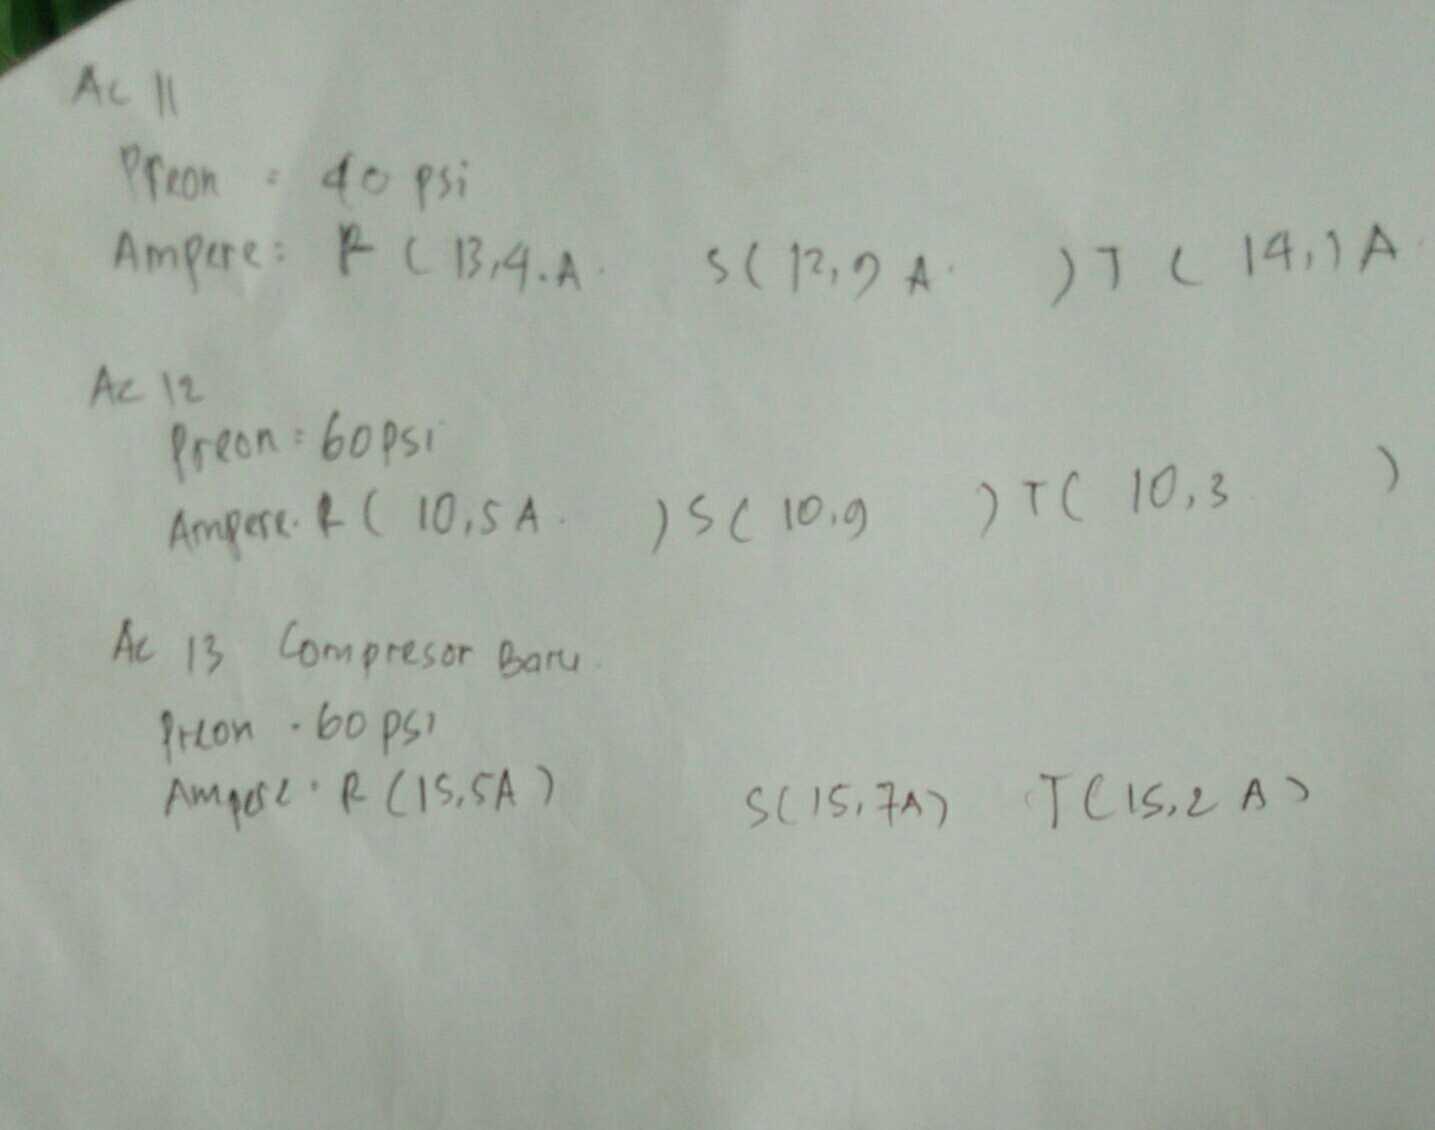 Ac 11
Preon = 40 psi
Ampere: R ( 13,4. A. S( 12,9 A. ) T ( 14,1 A.
Ac 12
Preon = 60 psi
Ampere. R ( 10,5 A. ) S ( 10,9 ) T ( 10,3 )
Ac 13 Compresor Baru.
Preon . 60 psi
Ampere . R (15,5A) S(15,7A) T (15,2 A)